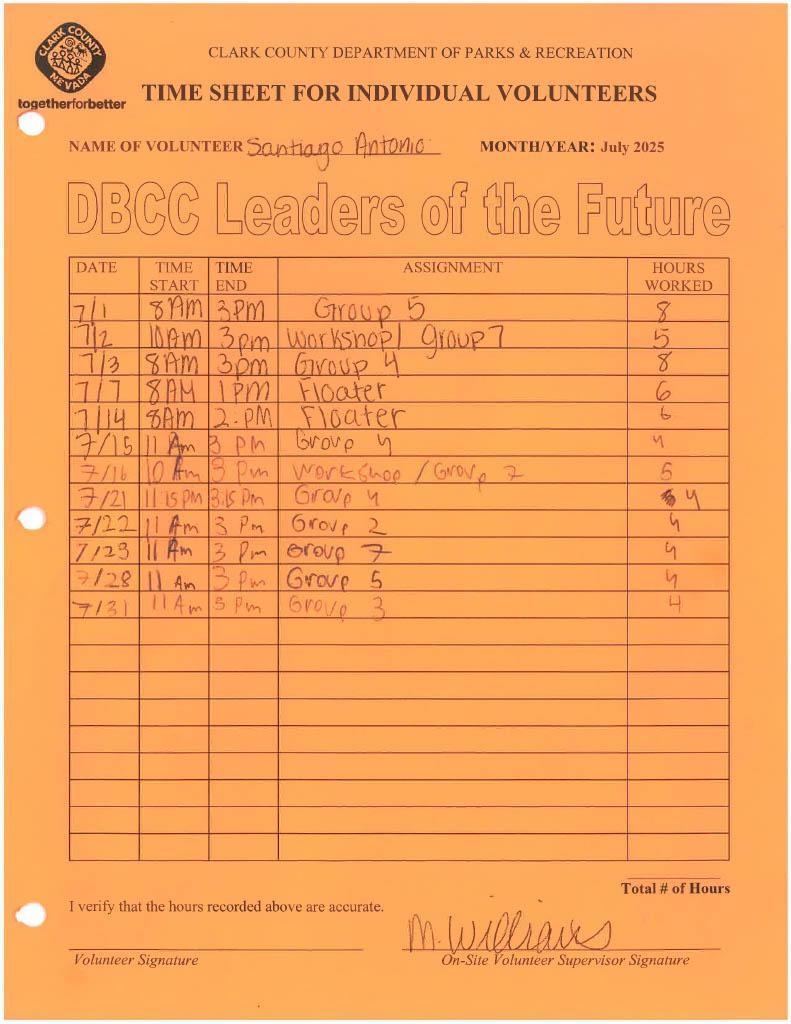 CLARK COUNTY
NEVADA
togetherforbetter
CLARK COUNTY DEPARTMENT OF PARKS & RECREATION
TIME SHEET FOR INDIVIDUAL VOLUNTEERS
NAME OF VOLUNTEER Santiago Antonio MONTH/YEAR: July 2025
DBCC Leaders of the Future
DATE TIME START TIME END ASSIGNMENT HOURS WORKED
7/1 8AM 3PM Group 5 8
7/2 10AM 3pm Workshop/ Group 7 5
7/3 8AM 3pm Group 4 8
7/7 8AM 1PM Floater 6
7/14 8AM 2:PM Floater 6
7/15 11 Am 3 Pm Group 4 4
7/16 10 Am 3 Pm Workshop / Group 7 5
7/21 11:15 PM 3:15 Pm Group 4 4
7/22 11 Am 3 Pm Group 2 4
7/29 11 Am 3 Pm Group 7 4
7/28 11 Am 3 Pm Group 5 4
7/31 11 Am 3 Pm Group 3 4
Total # of Hours
I verify that the hours recorded above are accurate.
M. Williams
Volunteer Signature On-Site Volunteer Supervisor Signature